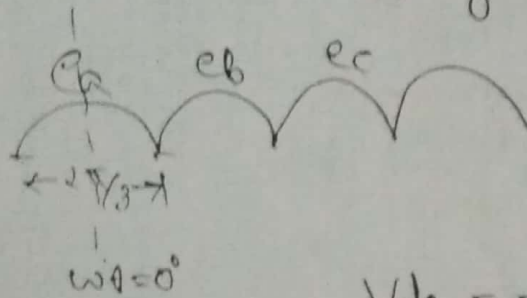 ea eb ec
2π/3
ωt=0°